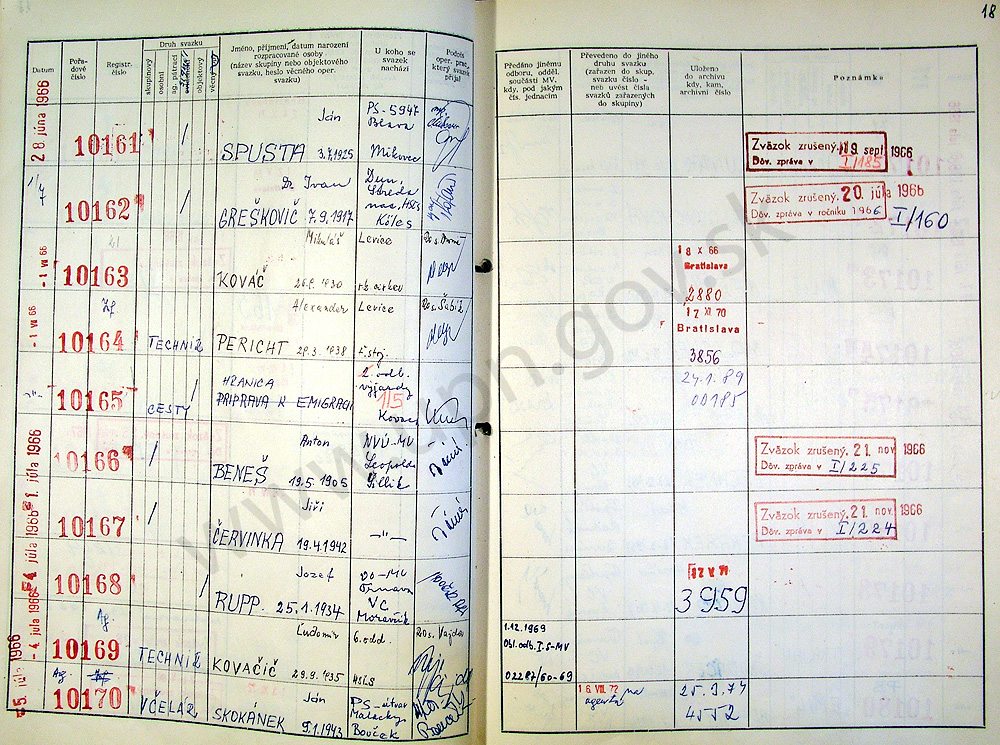 18
Datum
Pořa-
dové
číslo
Registr.
číslo
Druh svazku
skupinový
osobní
ag. pátrací
objektový
věcný
Jméno, příjmení, datum narození
rozpracované osoby
(název skupiny nebo objektového
svazku, heslo věcného oper.
svazku)
U koho se
svazek
nachází
Podpis
oper. prac.,
který svazek
přijal
Předáno jinému
odboru, odděl.
součásti MV.
kdy, pod jakým
čís. jednacím
Převedeno do jiného
druhu svazku
(zařazen do skup.
svazku číslo -
neb uvést čísla
svazků zařazených
do skupiny)
Uloženo
do archivu
kdy, kam,
archivní číslo
Poznámka
28 júna 1966
10161
/
Ján
SPUSTA 3.7.1925
PS-5947
Mikovec
Zväzok zrušený, 19. sept. 1966
Dôv. zpráva v I/185
1/7
10162
/
Dr Ivan
GREŠKOVIČ 7.9.1917
Dun.
Streda
nac. HSLS
Köles
Zväzok zrušený, 20. júla 1966
Dôv. zpráva v ročníku 1966 I/160
-1 VII 66
10163
Mikuláš
KOVÁČ
1930
Levice
18 X 66
Bratislava
2880
-1 VII 66
10164
TECHNIK
Alexander
PERICHT 28.3.1938
Levice
17 XI 70
Bratislava
3856
-"-
10165
/
CESTY
HRANICA
PRÍPRAVA K EMIGRACII
2. odb.
výjazdy
115
Kovac
24.1.89
00185
1. júla 1966
10166
/
Anton
BENEŠ 19.5.1905
NVÚ-MV
Leopoldov
Gillik
Zväzok zrušený, 21. nov. 1966
Dôv. zpráva v I/225
10167
/
Jiří
ČERVINKA 19.4.1942
-"-
Zväzok zrušený, 21. nov. 1966
Dôv. zpráva v I/224
-4 júla 1966
10168
/
Jozef
RUPP. 25.1.1934
OO-MV
Trnava
VC
Moravčík
12 V 71
3959
-4 júla 1966
Ag.
10169
TECHNIK
Ľudomír
KOVAČIČ 29.9.1935
6. odd.
HSĽS
20s. Vajda
1.12.1969
Obl. odb. I. S-MV
02287/60-69
-5 júla 1966
Ag.
10170
VČELÁR
Ján
SKOKÁNEK 9.1.1943
PS-útvar
Malacky
Bouček
16. VIII. 72 na
agenta
25.9.74
4552
www.upn.gov.sk